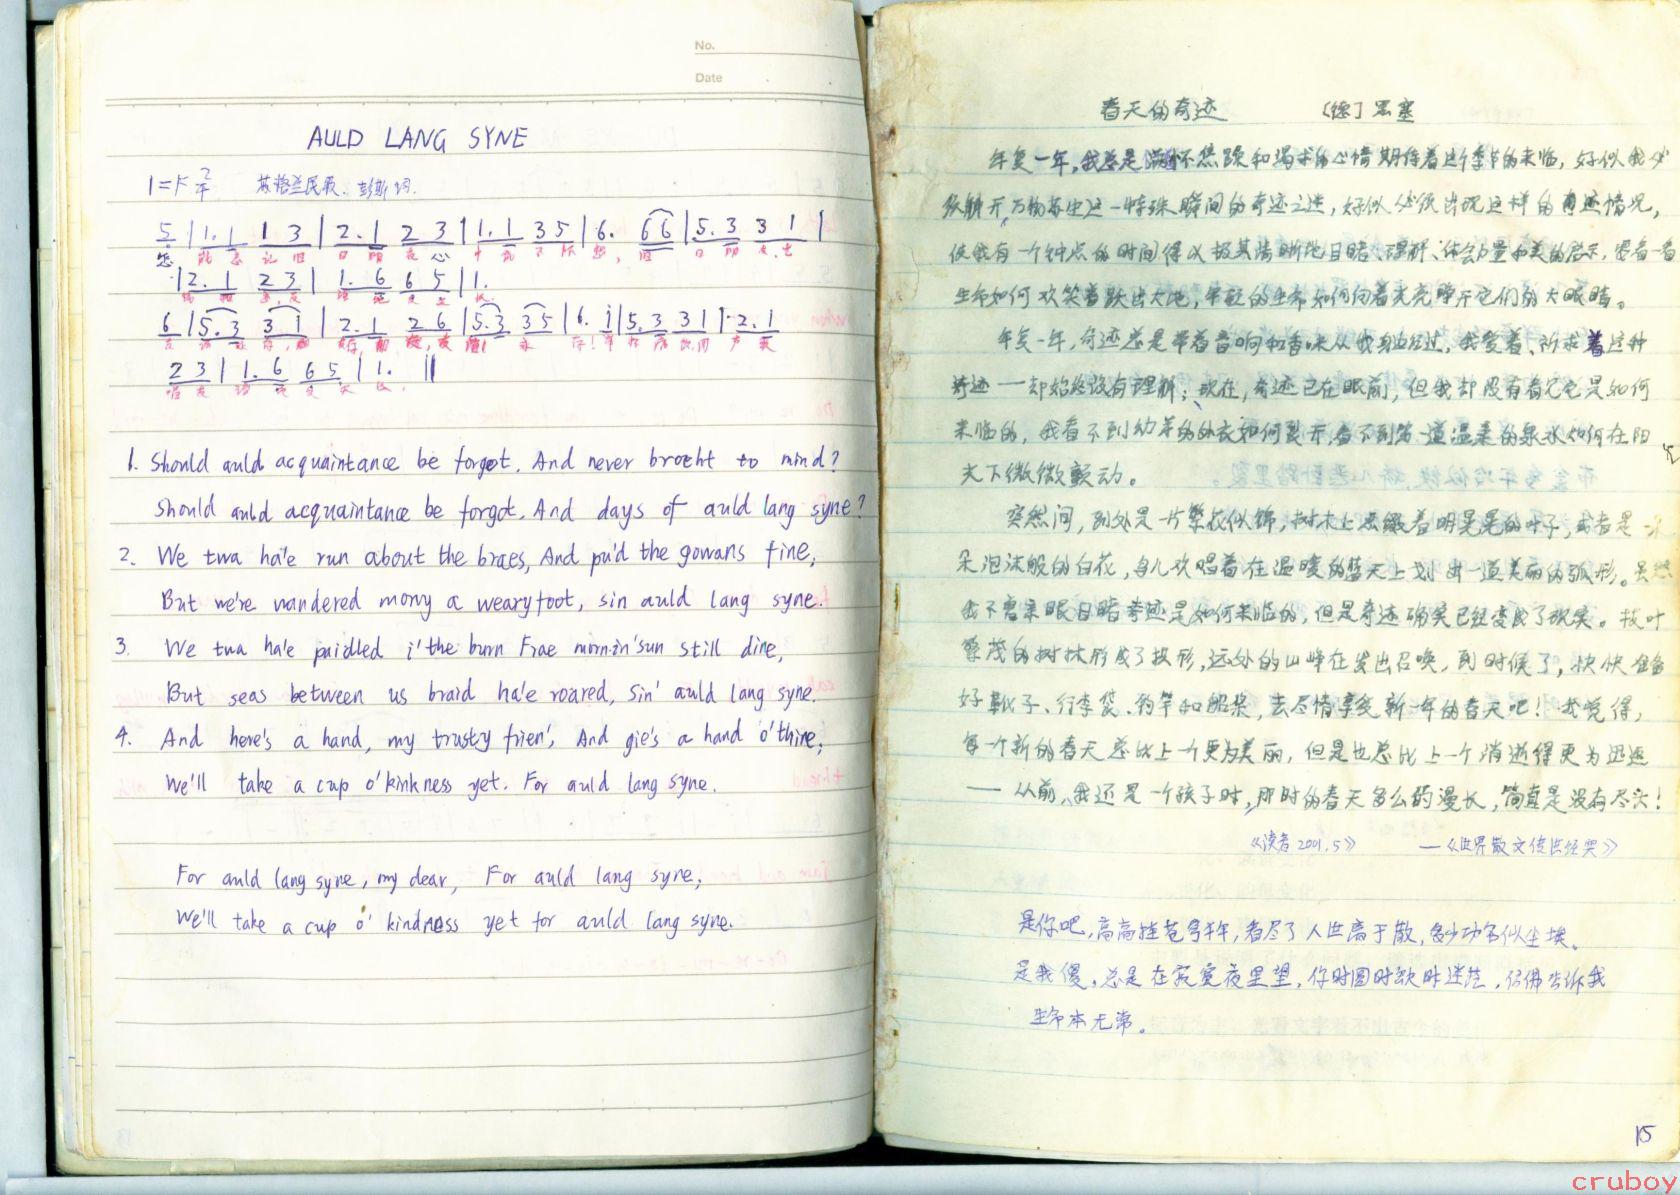 No.
Date
AULD LANG SYNE
1=F 2/4 苏格兰民歌. 彭斯 词.
5 | 1. 1 1 3 | 2. 1 2 3 | 1. 1 3 5 | 6. 6 6 | 5. 3 3 1 |
2. 1 2 3 | 1. 6 6 5 | 1.
6 | 5. 3 3 1 | 2. 1 2 6 | 5. 3 3 5 | 6. i | 5. 3 3 1 | 2. 1
2 3 | 1. 6 6 5 | 1. ||
1. Should auld acquaintance be forgot, And never brozht to mind?
Should auld acquaintance be forgot, And days of auld lang syne?
2. We twa ha'e run about the braes, And pu'd the gowans fine,
But we're wandered mony a weary foot, sin auld lang syne.
3. We twa ha'e paidled i' the burn Frae mornin' sun still dine,
But seas between us braid ha'e roared, Sin' auld lang syne.
4. And here's a hand, my trusty frien', And gie's a hand o' thine,
We'll take a cup o' kinkness yet. For auld lang syne.
For auld lang syne, my dear, For auld lang syne,
We'll take a cup o' kindness yet for auld lang syne.
春天的奇迹 〔德〕黑塞
年复一年,我总是满怀焦躁和渴求的心情期待着这个季节的来临,好似我必
须解开万物苏生这一特殊瞬间的奇迹之迷,好似必须出现这样的奇迹情况,
使我有一个钟点的时间得以极其清晰地目睹、理解、体会力量和美的启示,要看一看
生命如何欢笑着跃出大地,年轻的生命如何向着光亮睁开它们的大眼睛。
年复一年,奇迹总是带着音响和香味从我身边经过,我爱着、祈求着这种
奇迹——却始终没有理解;现在,奇迹已在眼前,但我却没有看见它是如何
来临的,我看不到幼芽的外衣如何裂开,看不到第一道温柔的泉水如何在阳
光下微微颤动。
突然间,到处是一片繁花似锦,树木上点缀着明晃晃的叶子,或者是一朵
朵泡沫般的白花,鸟儿欢唱着在温暖的蓝天上划出一道美丽的弧形。虽然
我不曾亲眼目睹奇迹是如何来临的,但是奇迹确实已经变成了现实。枝叶
繁茂的树林形成了拱形,远处的山峰在发出召唤,到时候了,快快准备
好靴子、行李袋、钓竿和船桨,去尽情享受新一年的春天吧!我觉得,
每一个新的春天总比上一个更为美丽,但是也总比上一个消逝得更为迅速
——从前,我还是一个孩子时,那时的春天多么的漫长,简直是没有尽头!
《读者2001.5》 —《世界散文传世经典》
是你吧,高高挂苍穹千年,看尽了人世离于散,多少功名似尘埃。
是我傻,总是在寂寞夜里望,你时圆时缺时迷茫,仿佛告诉我
生命本无常。
15
cruboy